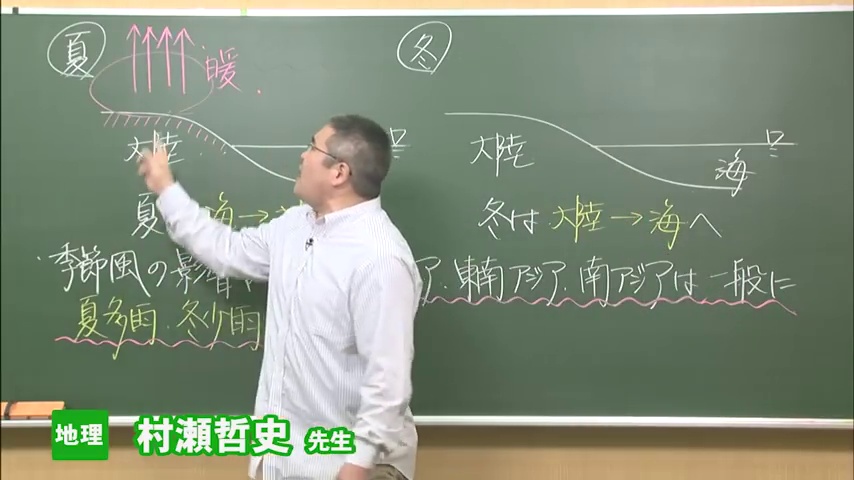 夏
冬
暖
大陸
大陸
海
夏 海→
冬は大陸→海へ
季節風の影
ア.東南アジア.南アジアは一般に
夏多雨.冬少雨
地理 村瀬哲史 先生